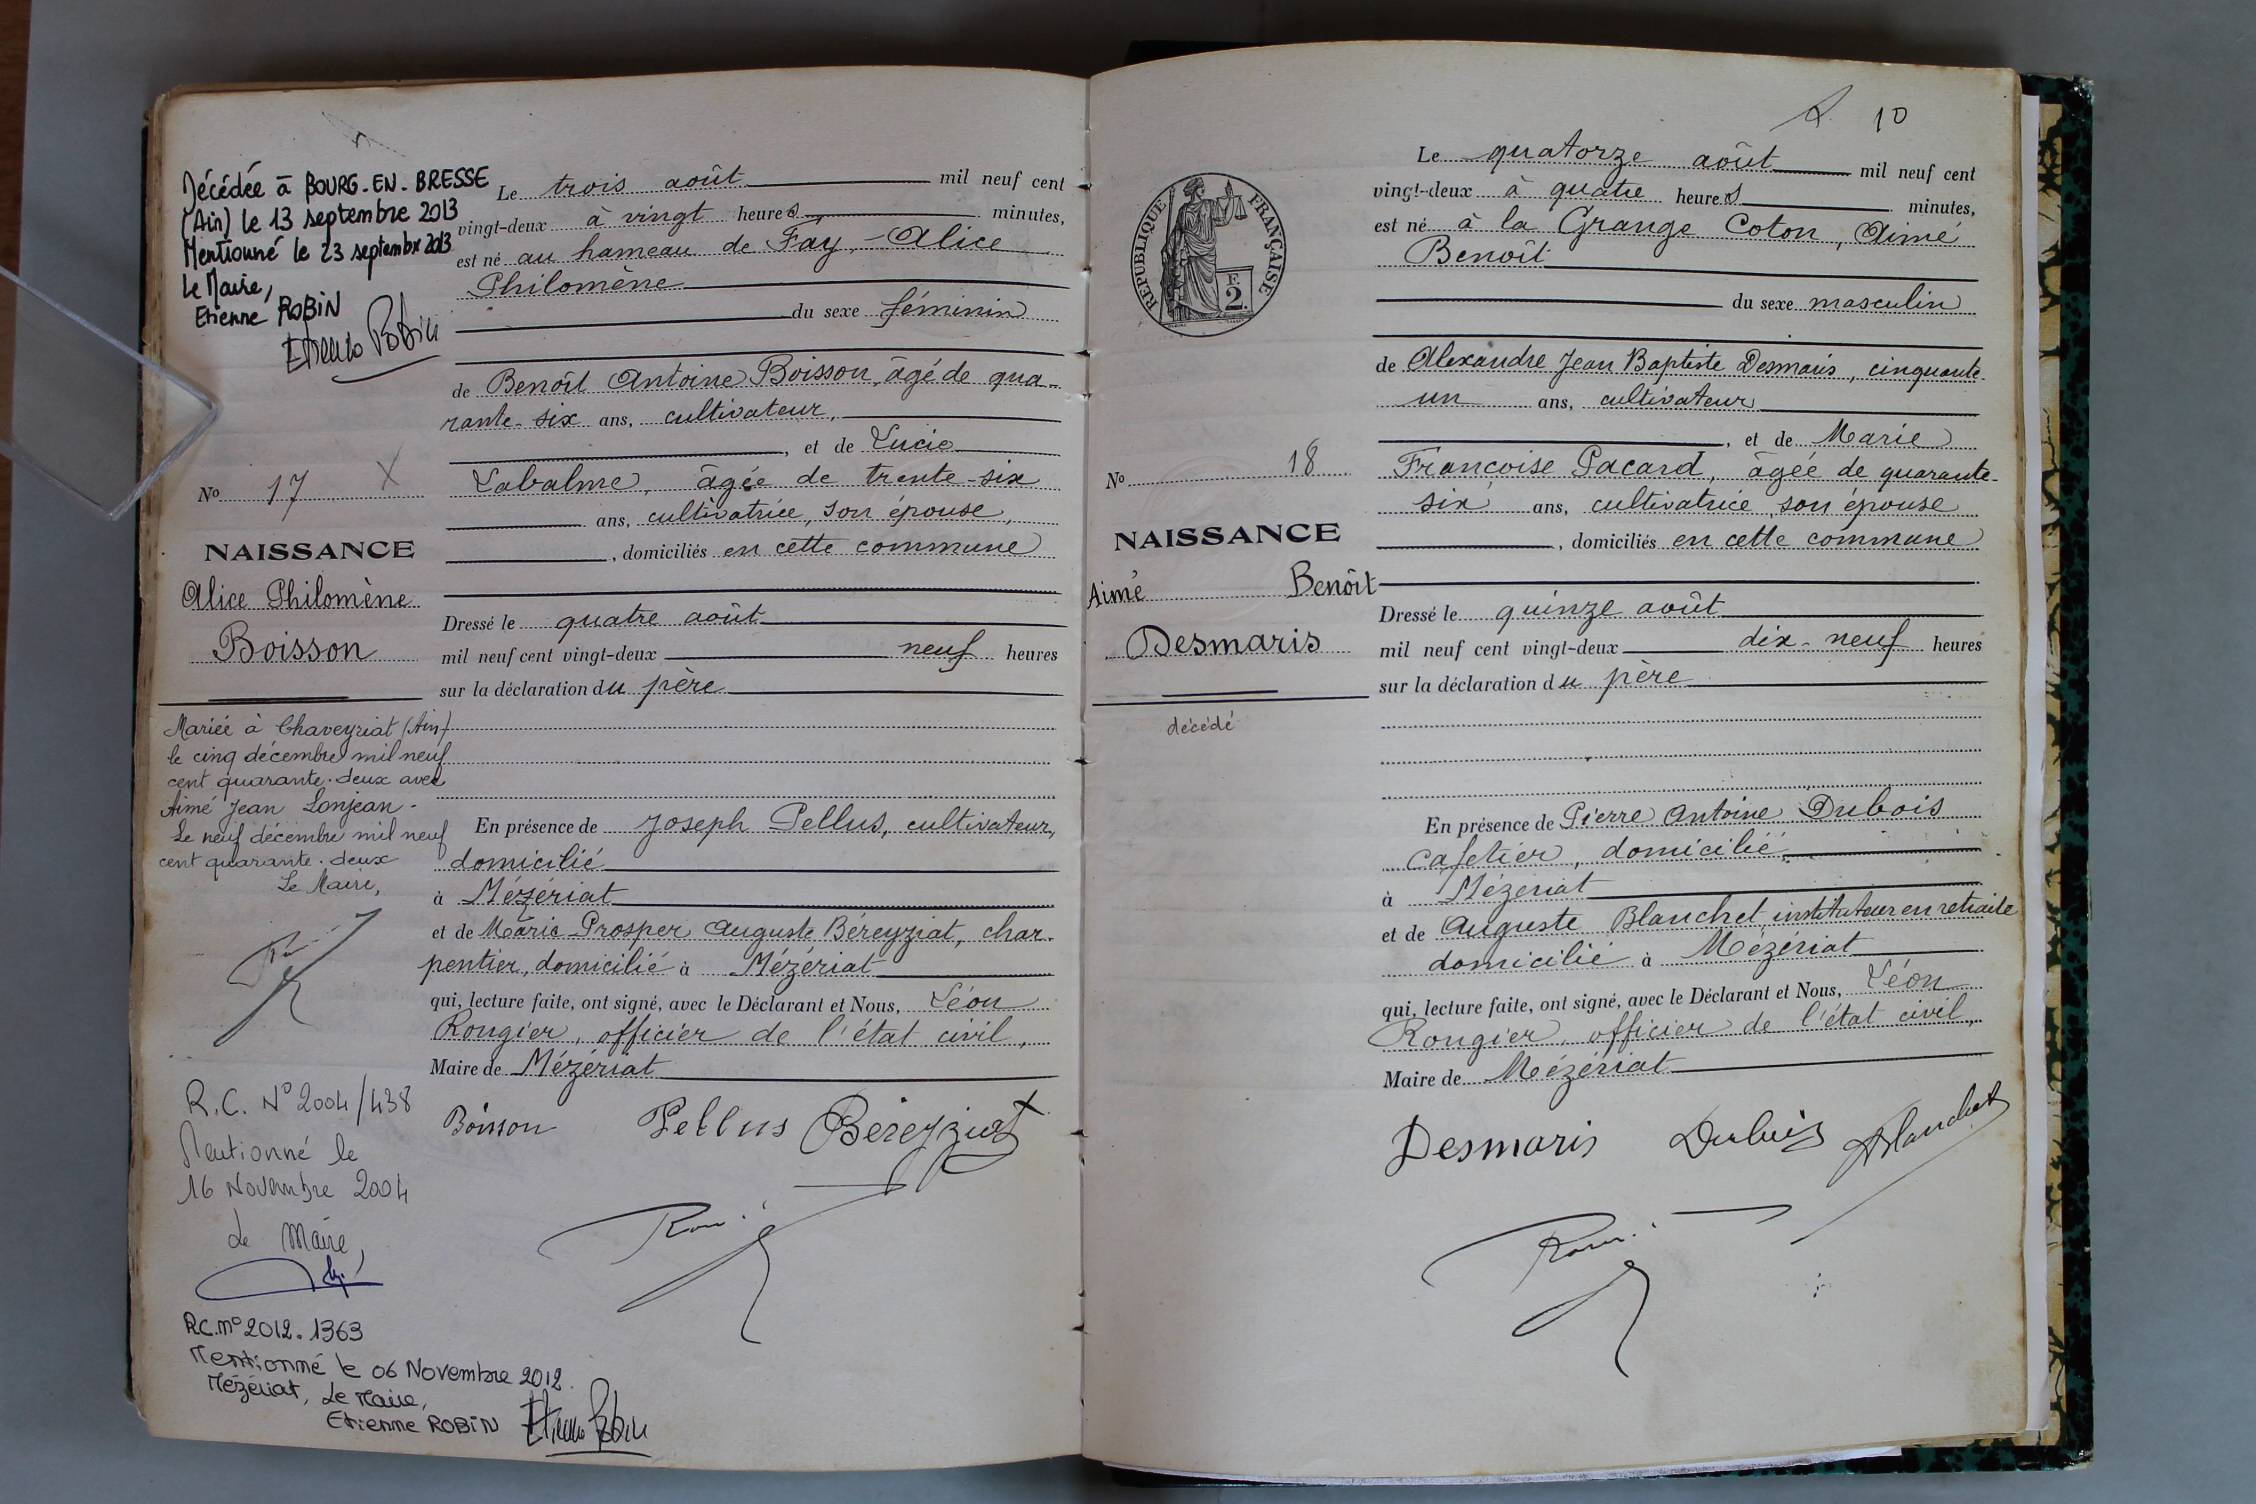 Décédée à BOURG-EN-BRESSE
(Ain) le 13 septembre 2013
Mentionné le 23 septembre 2013
Le Maire,
Etienne ROBIN
Etienne Robin
No 17 X
NAISSANCE
Alice Philomène
Boisson
Mariée à Chaveyriat (Ain)
le cinq décembre mil neuf
cent quarante-deux avec
Aimé Jean Lonjean.
Le neuf décembre mil neuf
cent quarante-deux
Le Maire,
R.C. N° 2004/438
Mentionné le
16 Novembre 2004
Le Maire,
R.C. n° 2012.1363
Mentionné le 06 Novembre 2012.
Mézériat, Le Maire,
Etienne ROBIN Etienne Robin
Le trois août mil neuf cent
vingt-deux à vingt heures minutes,
est né au hameau de Fay, - Alice
Philomène
du sexe féminin
de Benoît Antoine Boisson, âgé de qua-
rante-six ans, cultivateur,
, et de Lucie
Labalme, âgée de trente-six
ans, cultivatrice, son épouse,
, domiciliés en cette commune
Dressé le quatre août
mil neuf cent vingt-deux neuf heures
sur la déclaration du père
En présence de Joseph Pellus, cultivateur,
domicilié
à Mézériat
et de Marie-Prosper Auguste Béreyziat, char-
pentier, domicilié à Mézériat
qui, lecture faite, ont signé, avec le Déclarant et Nous, Léon
Rougier, officier de l'état civil,
Maire de Mézériat
Boisson Pellus Béreyziat
10
RÉPUBLIQUE FRANÇAISE
F.
2.
No 18
NAISSANCE
Aimé Benoît
Desmaris
décédé
Le quatorze août mil neuf cent
vingt-deux à quatre heures minutes,
est né à la Grange Coton, Aimé
Benoît
du sexe masculin
de Alexandre Jean Baptiste Desmaris, cinquante-
un ans, cultivateur
, et de Marie
Françoise Pacard, âgée de quarante-
six ans, cultivatrice, son épouse
, domiciliés en cette commune
Dressé le quinze août
mil neuf cent vingt-deux dix-neuf heures
sur la déclaration du père
En présence de Pierre Antoine Dubois
cafetier, domicilié,
à Mézériat
et de Auguste Blanchet, instituteur en retraite
domicilié à Mézériat
qui, lecture faite, ont signé, avec le Déclarant et Nous, Léon
Rougier, officier de l'état civil,
Maire de Mézériat
Desmaris Dubois Blanchet